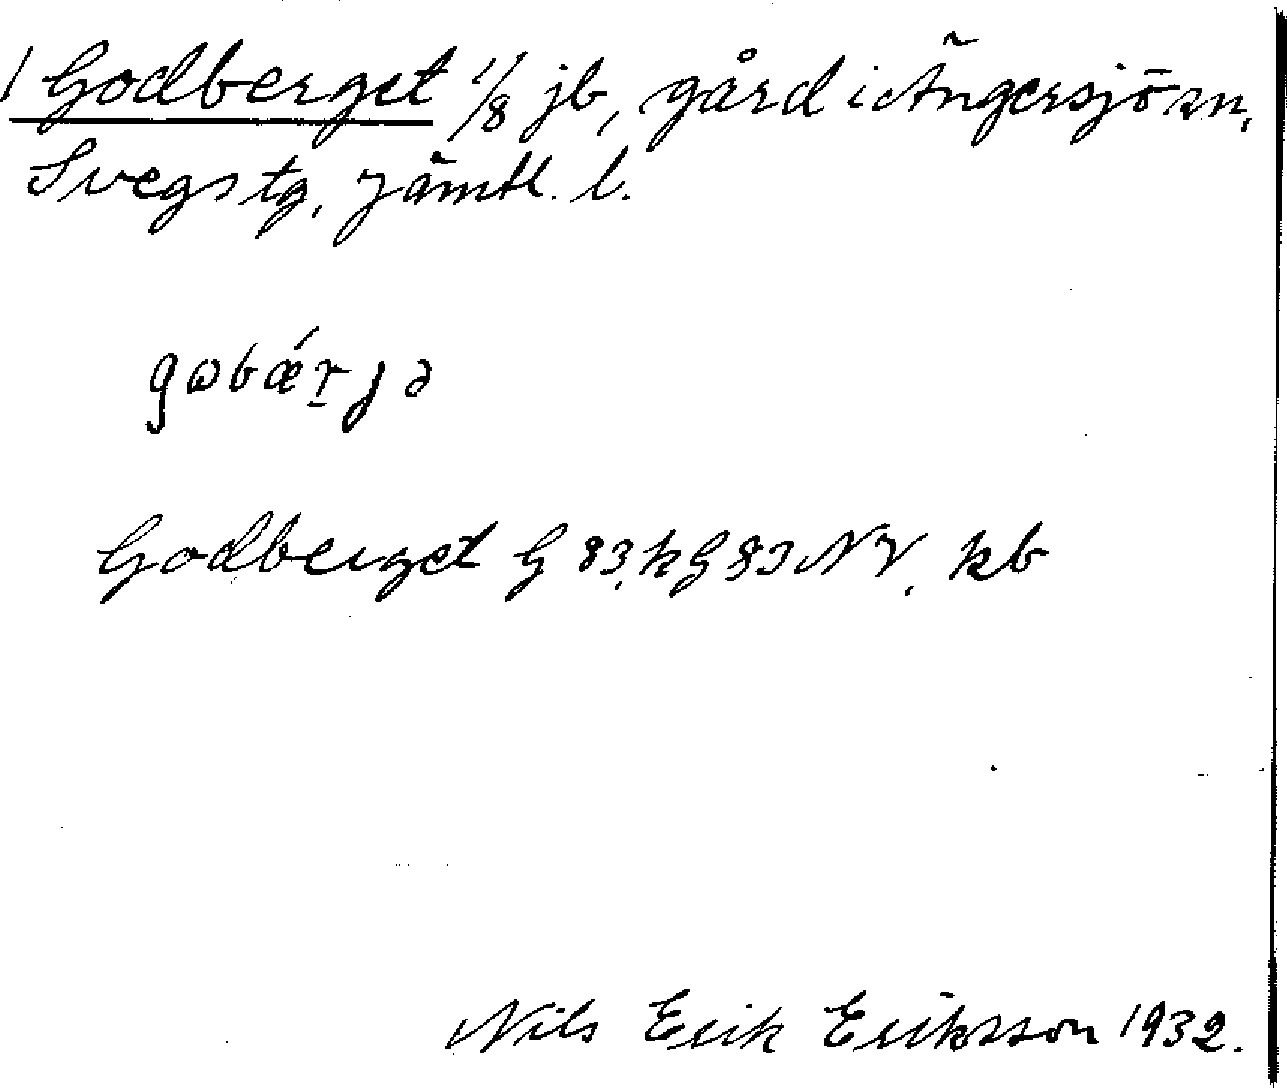 1 Godberget 1/8 jb, gård i Ängersjö sn,
Svegs tg, Jämtl. l.
gɷbǽr̠jə
Godberget G 83, k G 83 NV, kb
Nils Erik Eriksson 1932.